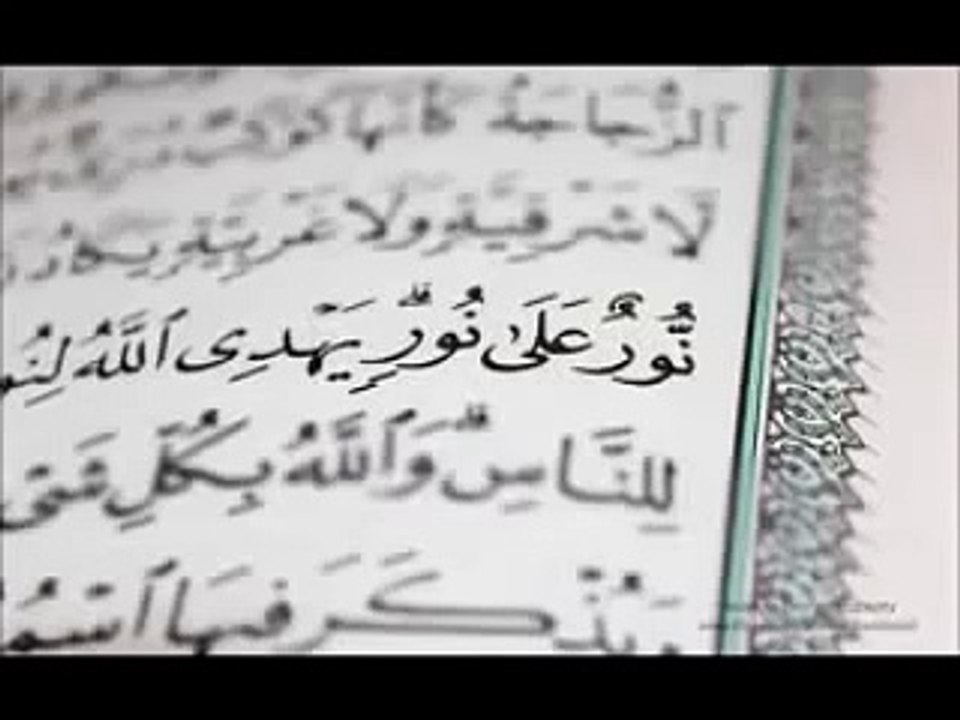 ٱلزُّجَاجَةُ كَأَنَّهَا كَوْكَبٌ
لَّا شَرْقِيَّةٍ وَلَا غَرْبِيَّةٍ يَكَادُ
نُّورٌ عَلَىٰ نُورٍ ۗ يَهْدِى ٱللَّهُ
لِلنَّاسِ ۗ وَٱللَّهُ بِكُلِّ
وَيُذْكَرَ فِيهَا ٱسْمُ